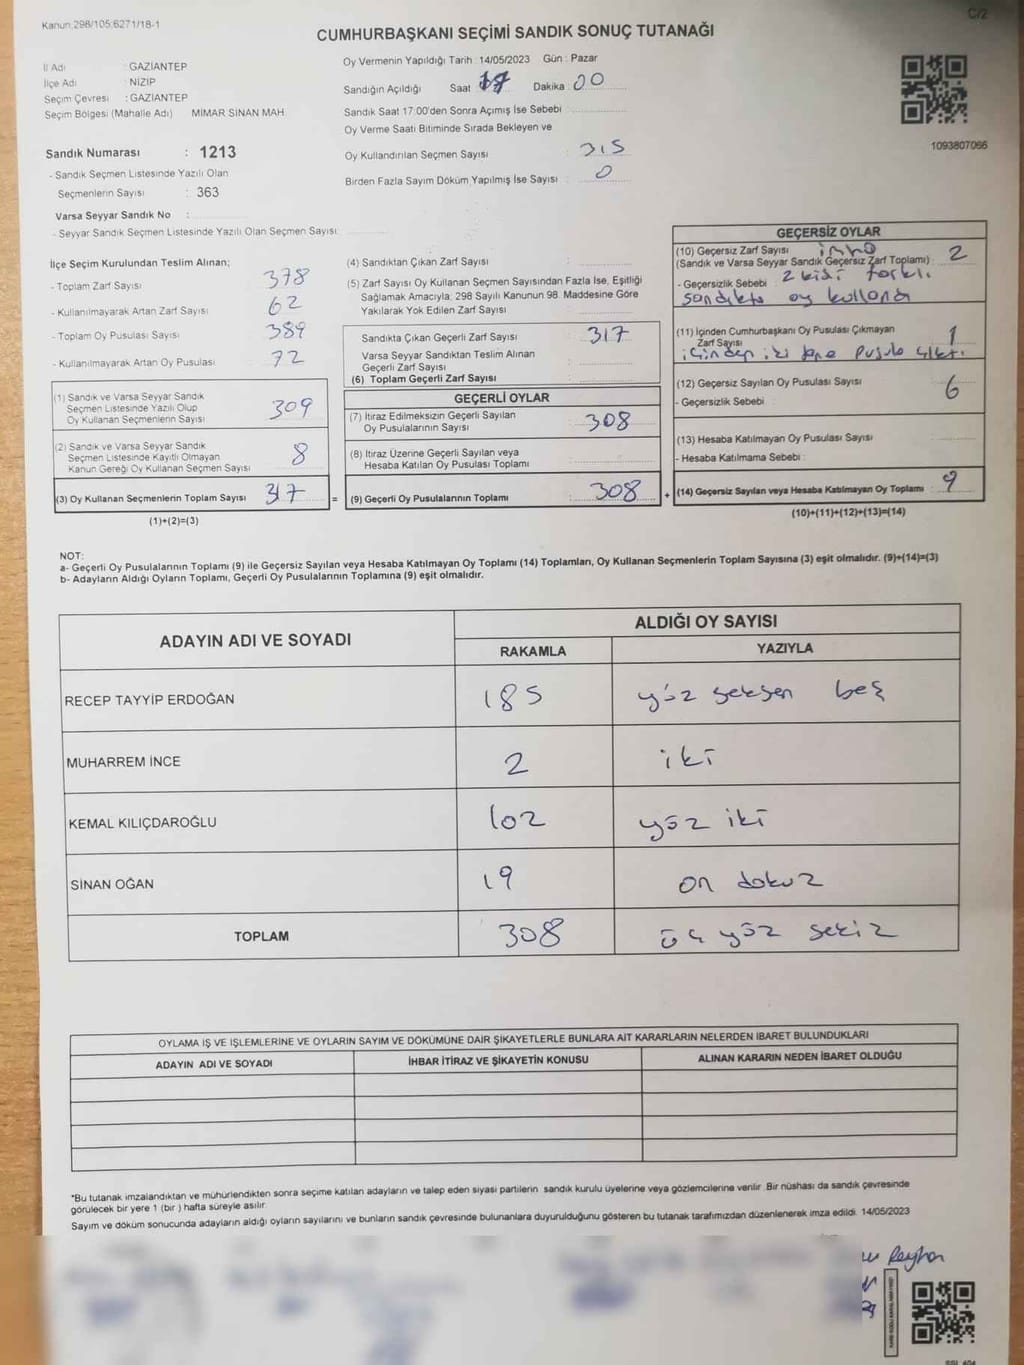 Kanun:298/105;6271/18-1
C/2
CUMHURBAŞKANI SEÇİMİ SANDIK SONUÇ TUTANAĞI
İl Adı : GAZİANTEP
İlçe Adı : NİZİP
Seçim Çevresi : GAZİANTEP
Seçim Bölgesi (Mahalle Adı) MİMAR SİNAN MAH.
Oy Vermenin Yapıldığı Tarih : 14/05/2023 Gün : Pazar
Sandığın Açıldığı Saat 17 Dakika 00
Sandık Saat 17:00'den Sonra Açımış İse Sebebi :
Oy Verme Saati Bitiminde Sırada Bekleyen ve
Oy Kullandırılan Seçmen Sayısı : 315
Birden Fazla Sayım Döküm Yapılmış İse Sayısı : 0
1093807066
Sandık Numarası : 1213
- Sandık Seçmen Listesinde Yazılı Olan
Seçmenlerin Sayısı : 363
Varsa Seyyar Sandık No :
- Seyyar Sandık Seçmen Listesinde Yazılı Olan Seçmen Sayısı:
İlçe Seçim Kurulundan Teslim Alınan;
- Toplam Zarf Sayısı : 378
- Kullanılmayarak Artan Zarf Sayısı : 62
- Toplam Oy Pusulası Sayısı : 389
- Kullanılmayarak Artan Oy Pusulası : 72
(1) Sandık ve Varsa Seyyar Sandık
Seçmen Listesinde Yazılı Olup
Oy Kullanan Seçmenlerin Sayısı : 309
(2) Sandık ve Varsa Seyyar Sandık
Seçmen Listesinde Kayıtlı Olmayan
Kanun Gereği Oy Kullanan Seçmen Sayısı : 8
(3) Oy Kullanan Seçmenlerin Toplam Sayısı : 317
(1)+(2)=(3)
(4) Sandıktan Çıkan Zarf Sayısı :
(5) Zarf Sayısı Oy Kullanan Seçmen Sayısından Fazla İse, Eşitliği
Sağlamak Amacıyla; 298 Sayılı Kanunun 98. Maddesine Göre
Yakılarak Yok Edilen Zarf Sayısı :
Sandıkta Çıkan Geçerli Zarf Sayısı : 317
Varsa Seyyar Sandıktan Teslim Alınan
Geçerli Zarf Sayısı :
(6) Toplam Geçerli Zarf Sayısı :
GEÇERLİ OYLAR
(7) İtiraz Edilmeksizin Geçerli Sayılan
Oy Pusulalarının Sayısı : 308
(8) İtiraz Üzerine Geçerli Sayılan veya
Hesaba Katılan Oy Pusulası Toplamı :
= (9) Geçerli Oy Pusulalarının Toplamı : 308
GEÇERSİZ OYLAR
(10) Geçersiz Zarf Sayısı
(Sandık ve Varsa Seyyar Sandık Geçersiz Zarf Toplamı) : 2
- Geçersizlik Sebebi : 2 kişi farklı
sandıkta oy kullandı
(11) İçinden Cumhurbaşkanı Oy Pusulası Çıkmayan
Zarf Sayısı : 1
içinden iki tane pusula çıktı.
(12) Geçersiz Sayılan Oy Pusulası Sayısı : 6
- Geçersizlik Sebebi :
(13) Hesaba Katılmayan Oy Pusulası Sayısı :
- Hesaba Katılmama Sebebi :
+ (14) Geçersiz Sayılan veya Hesaba Katılmayan Oy Toplamı : 9
(10)+(11)+(12)+(13)=(14)
NOT:
a- Geçerli Oy Pusulalarının Toplamı (9) ile Geçersiz Sayılan veya Hesaba Katılmayan Oy Toplamı (14) Toplamları, Oy Kullanan Seçmenlerin Toplam Sayısına (3) eşit olmalıdır. (9)+(14)=(3)
b- Adayların Aldığı Oyların Toplamı, Geçerli Oy Pusulalarının Toplamına (9) eşit olmalıdır.
ADAYIN ADI VE SOYADI
ALDIĞI OY SAYISI
RAKAMLA YAZIYLA
RECEP TAYYİP ERDOĞAN 185 yüz seksen beş
MUHARREM İNCE 2 iki
KEMAL KILIÇDAROĞLU 102 yüz iki
SİNAN OĞAN 19 on dokuz
TOPLAM 308 üç yüz sekiz
OYLAMA İŞ VE İŞLEMLERİNE VE OYLARIN SAYIM VE DÖKÜMÜNE DAİR ŞİKAYETLERLE BUNLARA AİT KARARLARIN NELERDEN İBARET BULUNDUKLARI
ADAYIN ADI VE SOYADI İHBAR İTİRAZ VE ŞİKAYETİN KONUSU ALINAN KARARIN NEDEN İBARET OLDUĞU
*Bu tutanak imzalandıktan ve mühürlendikten sonra seçime katılan adayların ve talep eden siyasi partilerin sandık kurulu üyelerine veya gözlemcilerine verilir. Bir nüshası da sandık çevresinde
görülecek bir yere 1 (bir ) hafta süreyle asılır.
Sayım ve döküm sonucunda adayların aldığı oyların sayılarını ve bunların sandık çevresinde bulunanlara duyurulduğunu gösteren bu tutanak tarafımızdan düzenlenerek imza edildi. 14/05/2023
Reyhan